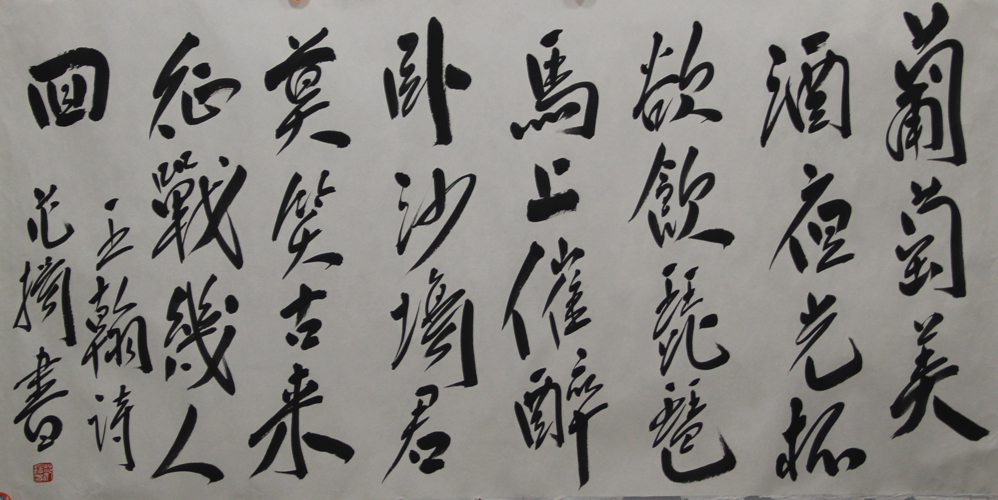 葡萄美
酒夜光杯
欲飲琵琶
馬上催醉
卧沙場君
莫笑古来
征戰幾人
回
王翰詩
書